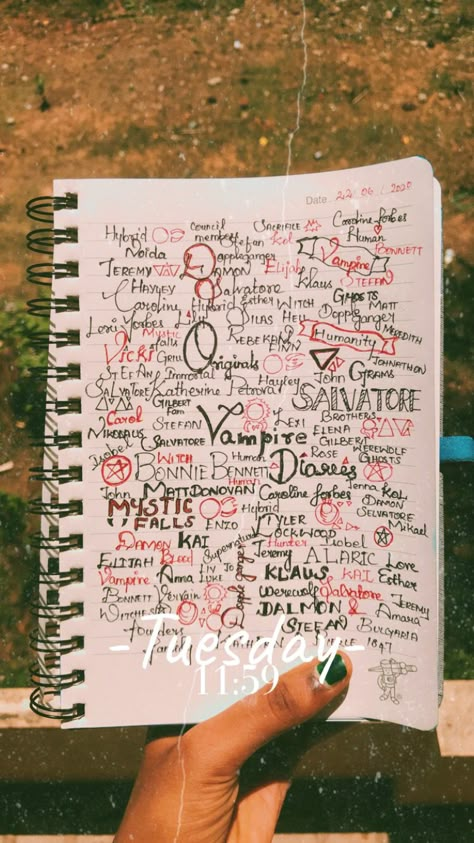 Date 22/06/2020
Hybrid Council Sacrifice Caroline forbes
members Stefan Kol Human
Noida Doppleganger Elijah Vampire Bennett
Jeremy Damon Klaus Stefan
Hayley Salvatore Ghosts
Caroline Hybrid Esther Witch Matt
Silas Doppelganger
Mystic Falls Rebekah Humanity Meredith
Vicki Grill Originals Finn Johnathon
Stefan Immortal Hayley John Grams
Salvatore Katherine Petrova SALVATORE
Gilbert Fam Lexi Brothers
Carol Stefan Vampire Elena
Mikolaus Salvatore Human Gilbert Werewolf
Isobel Witch Diaries Rose Ghosts
Bonnie Bennett Human Jenna Kol
John Matt Donovan Caroline forbes Damon
MYSTIC FALLS Hybrid Selvatore
Enzo Tyler Lockwood Mikael
Damon KAI Supernatural Hunter Isobel
Elijah Blood Jeremy ALARIC Love
Vampire Anna Liv Jo Luke KLAUS KAI Esther
Bennett Vervain Werewolf Salvatore Jeremy
Witches DALMON Amara
founders Stefan Bulgaria
family 1847
-Tuesday-
11:59